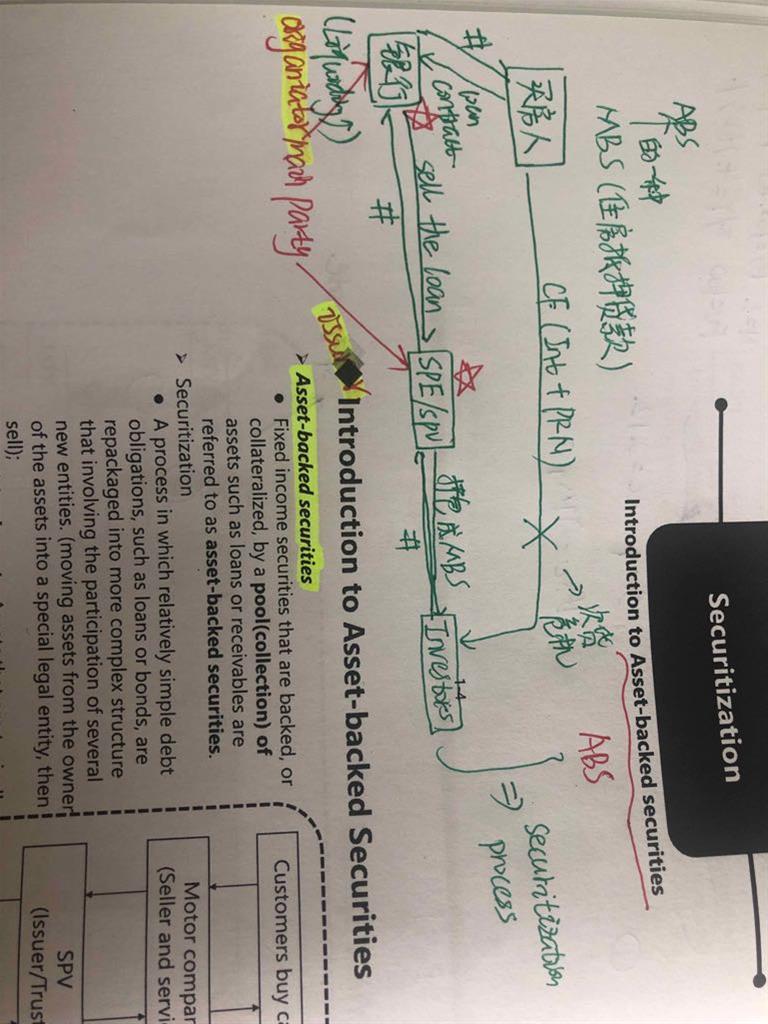 Securitization
Introduction to Asset-backed securities
ABS
ABS
的一种
MBS (住房抵押贷款)
次贷
危机
买房人
CF (Int + PRN)
securitization
process
loan
contract
银行
sell the loan
SPE/SPV
打包成MBS
Investors
main party
Introduction to Asset-backed Securities
➢ Asset-backed securities
● Fixed income securities that are backed, or
collateralized, by a pool(collection) of
assets such as loans or receivables are
referred to as asset-backed securities.
➢ Securitization
● A process in which relatively simple debt
obligations, such as loans or bonds, are
repackaged into more complex structure
that involving the participation of several
new entities. (moving assets from the owner
of the assets into a special legal entity, then
sell);
Customers buy ca
Motor compan
(Seller and servi
SPV
(Issuer/Trust